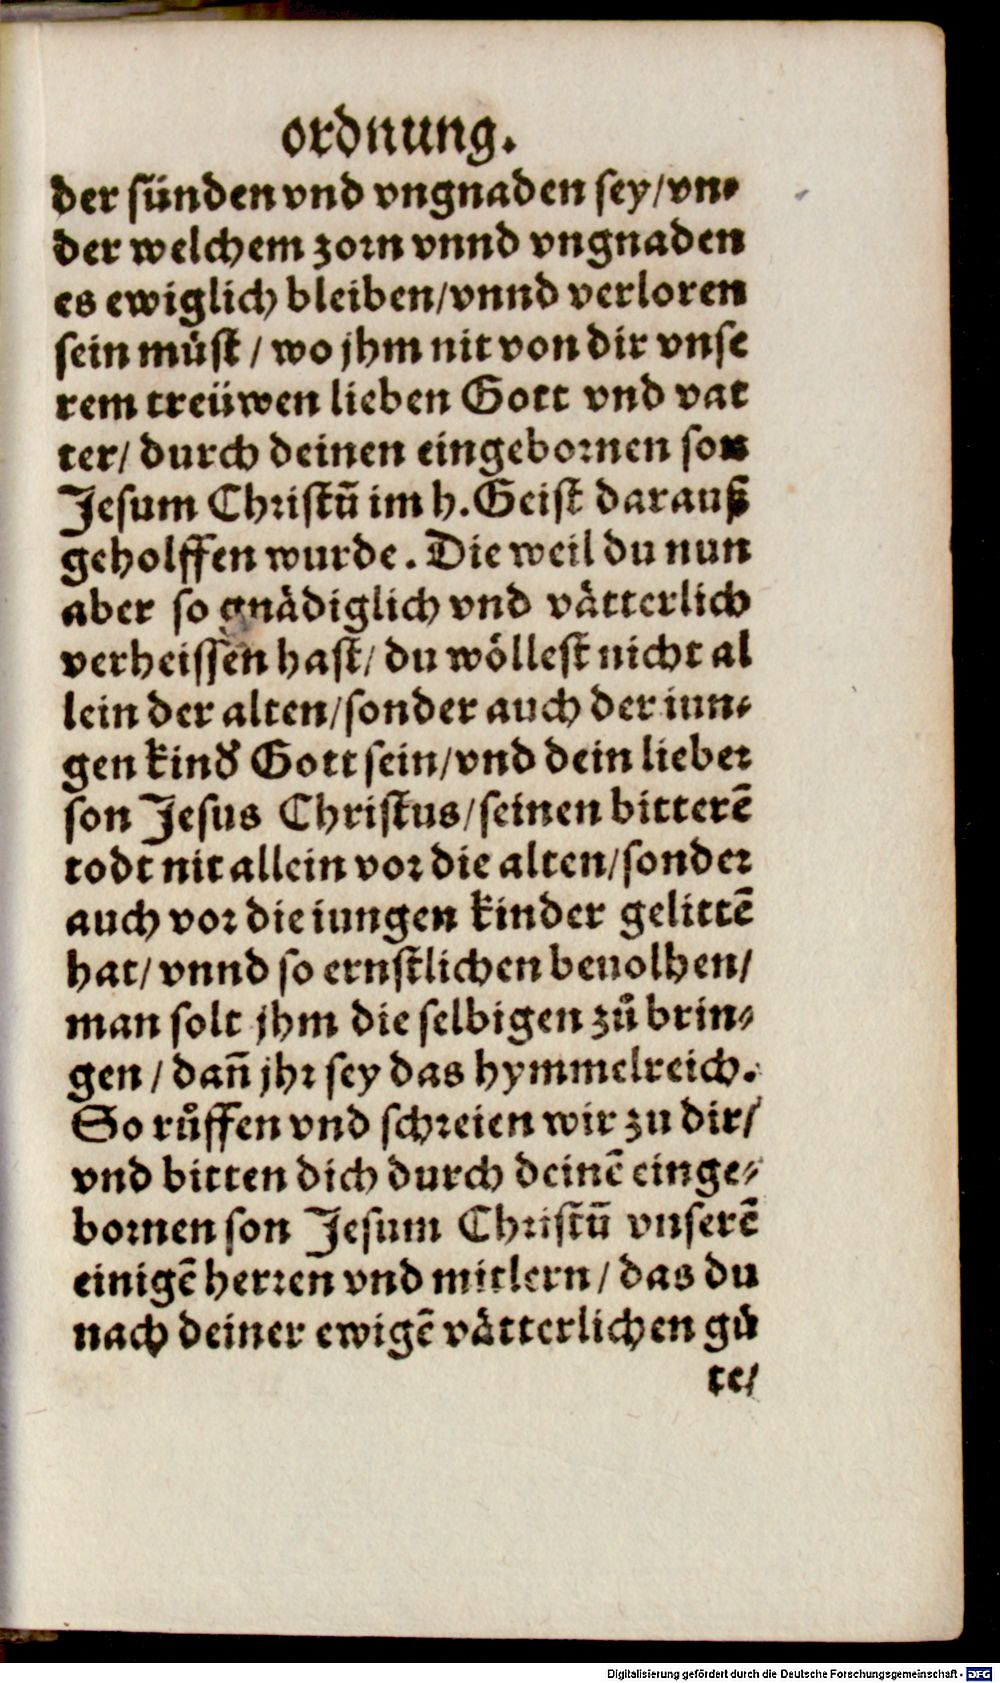 ordnung.
der sünden vnd vngnaden sey/vn⸗
der welchem zorn vnnd vngnaden
es ewiglich bleiben/vnnd verloren
sein müst / wo jhm nit von dir vnse
rem treüwen lieben Gott vnd vat
ter/ durch deinen eingebornen son
Jesum Christū im h. Geist darauß
geholffen wurde. Die weil du nun
aber so gnädiglich vnd vätterlich
verheissen hast/ du wöllest nicht al
lein der alten/sonder auch der iun⸗
gen kind̕ Gott sein/vnd dein lieber
son Jesus Christus/seinen bitterē
todt nit allein vor die alten/sonder
auch vor die iungen kinder gelittē
hat/ vnnd so ernstlichen beuolhen/
man solt jhm die selbigen zů brin⸗
gen / dañ jhr sey das hymmelreich.
So růffen vnd schreien wir zu dir/
vnd bitten dich durch deinē einge⸗
bornen son Jesum Christū vnserē
einigē herren vnd mitlern / das du
nach deiner ewigē vätterlichen gü
te/
Digitalisierung gefördert durch die Deutsche Forschungsgemeinschaft - DFG